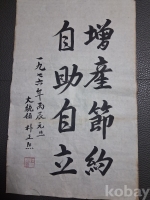 增產節約
自助自立
一九七六年丙辰元旦
大統領 朴正熙
kobay